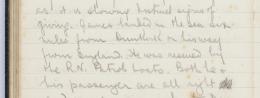 as it is showing hopeful signs of
giving. James landed in the sea six
miles from Dunkirk on his way
from England. He was rescued by
the R.N. Patrol boats. Both he &
his passenger are all right